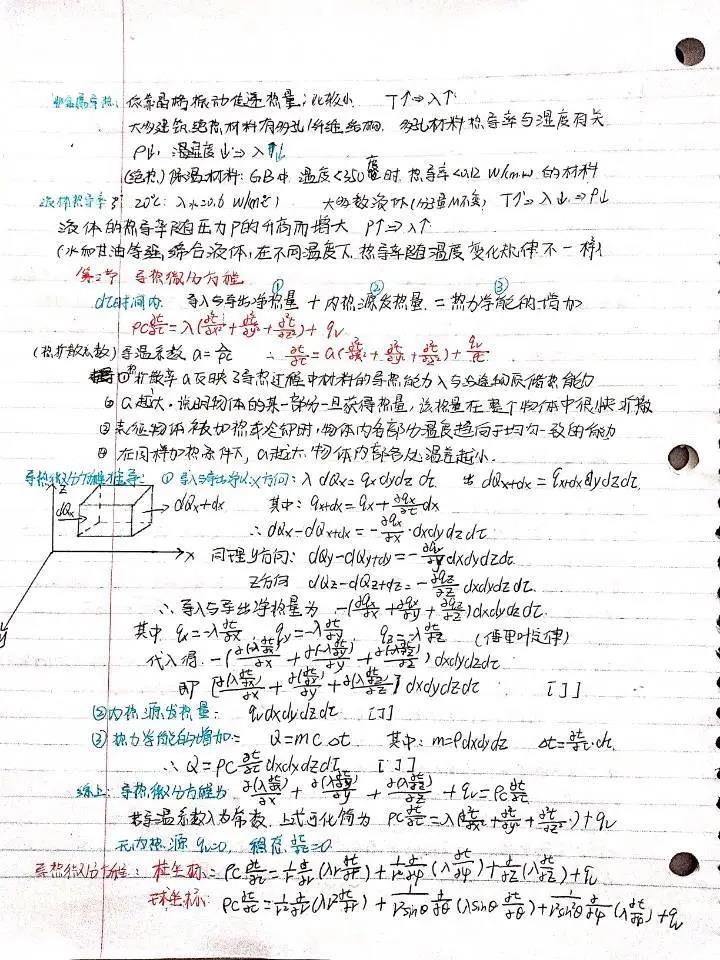 非金属导热: 依靠晶格振动传递热量; 比较小. T↑⇒λ↑
大多建筑绝热材料有多孔/纤维结构. 多孔材料热导率与湿度有关
ρ↓, 湿度↓⇒λ↓
(绝热)保温材料: GB中 温度<350度时. 热导率<0.12 W/(m·w) 的材料
液体热导率: 20℃: λ水=0.6 W/(m℃) 大多数液体(分子量M不变) T↑⇒λ↓⇒ρ↓
液体的热导率随压力P的升高而增大 P↑⇒λ↑
(水和甘油等强缔合液体, 在不同温度下, 热导率随温度变化规律不一样)
第二节 导热微分方程
① ② ③
dτ时间内: 导入与导出净热量 + 内热源发热量 = 热力学能的增加
ρc∂t/∂τ=λ(∂²t/∂x²+∂²t/∂y²+∂²t/∂z²)+qv
(热扩散系数)导温系数 a=λ/ρc ∴ ∂t/∂τ=a(∂²t/∂x²+∂²t/∂y²+∂²t/∂z²)+qv/ρc
①热扩散率a反映了导热过程中材料的导热能力λ与沿途物质储热能力
② a越大. 说明物体的某一部分一旦获得热量, 该热量在整个物体中很快扩散
③表征物体被加热或冷却时, 物体内各部分温度趋向于均匀一致的能力
④ 在同样加热条件下, a越大. 物体内部各处温差越小.
导热微分方程推导: ①导入与导出净热 x方向: dQx=qx dydz dτ. dQx+dx=qx+dx dydz dτ.
z dQx dQx+dx 其中: qx+dx=qx+∂qx/∂x dx
∴dQx-dQx+dx=-∂qx/∂x·dxdydzdτ
x 同理y方向: dQy-dQy+dy=-∂qy/∂y dxdydzdτ
z方向 dQz-dQz+dz=-∂qz/∂z dxdydzdτ.
y ∴导入与导出净热量为 -(∂qx/∂x+∂qy/∂y+∂qz/∂z)dxdydzdτ.
其中 qx=-λ∂t/∂x, qy=-λ∂t/∂y, qz=-λ∂t/∂z (傅里叶定律)
代入得. -(∂(-λ∂t/∂x)/∂x+∂(-λ∂t/∂y)/∂y+∂(-λ∂t/∂z)/∂z)dxdydzdτ
即 [∂(λ∂t/∂x)/∂x+∂(λ∂t/∂y)/∂y+∂(λ∂t/∂z)/∂z]dxdydzdτ [J]
②内热源发热量: qv dxdydzdτ [J]
③热力学能的增加: Q=mcΔt 其中: m=ρdxdydz Δt=∂t/∂τ·dτ.
∴Q=ρc∂t/∂τ dxdxdzdτ [J]
综上: 导热微分方程为 ∂(λ∂t/∂x)/∂x+∂(λ∂t/∂y)/∂y+∂(λ∂t/∂z)/∂z+qv=ρc∂t/∂τ
导温系数λ为常数. 上式可化简为 ρc∂t/∂τ=λ(∂²t/∂x²+∂²t/∂y²+∂²t/∂z²)+qv
无内热源 qv=0, 稳态 ∂t/∂τ=0.
导热微分方程: 柱坐标: ρc∂t/∂τ=1/r ∂/∂r(λr∂t/∂r)+1/r² ∂/∂φ(λ∂t/∂φ)+∂/∂z(λ∂t/∂z)+qv
球坐标: ρc∂t/∂τ=1/r² ∂/∂r(λr²∂t/∂r)+1/r²sinθ ∂/∂θ(λsinθ∂t/∂θ)+1/r²sin²θ ∂/∂φ(λ∂t/∂φ)+qv